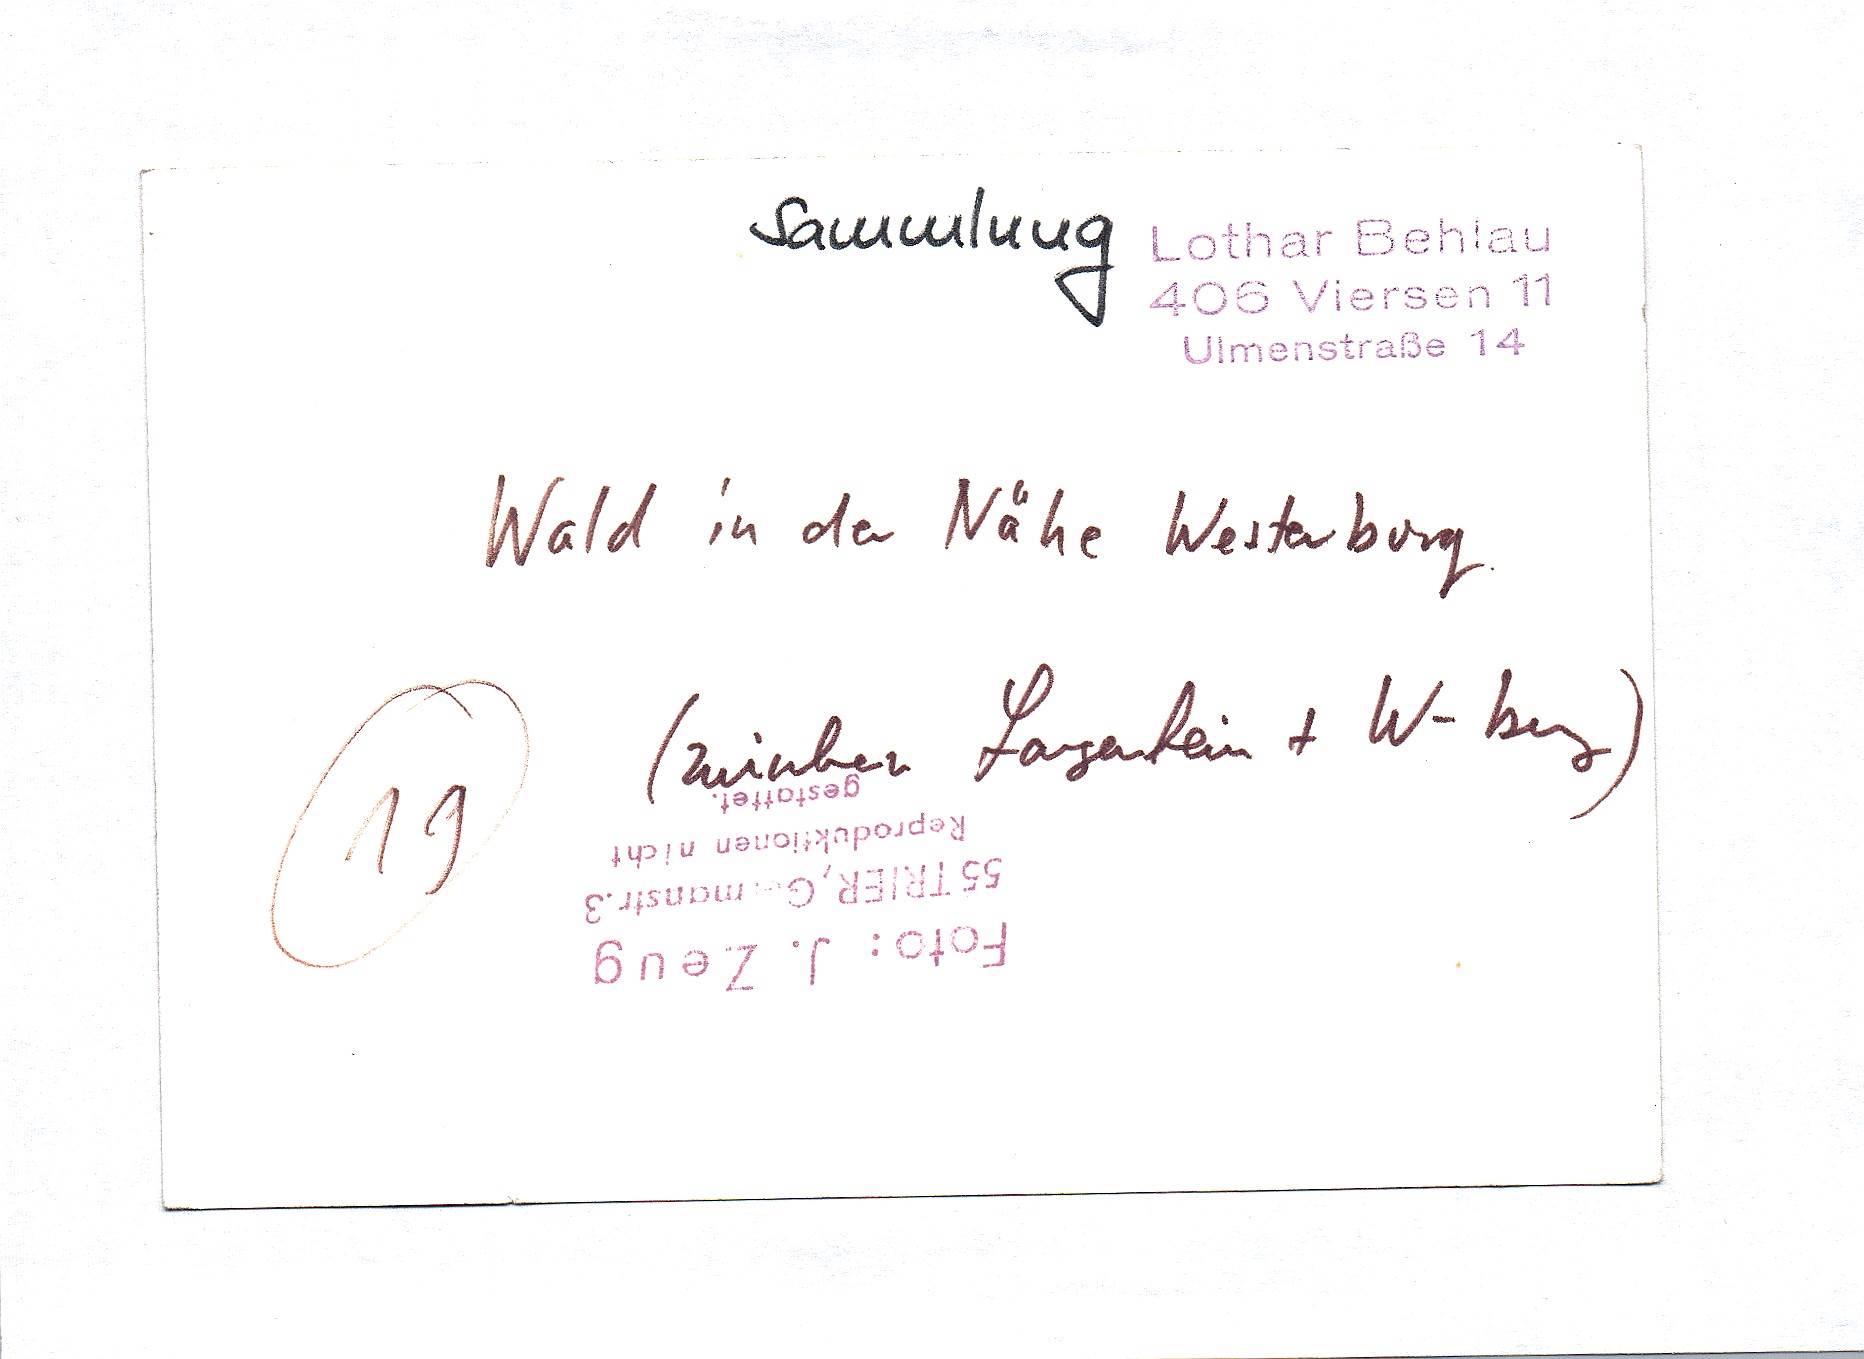 Sammlung
Lothar Behlau
406 Viersen 11
Ulmenstraße 14
Wald in der Nähe Westerburg
(zwischen Langenhein + W-burg)
19
Foto: J. Zeug
55 TRIER, G manstr.3
Reproduktionen nicht
gestattet.